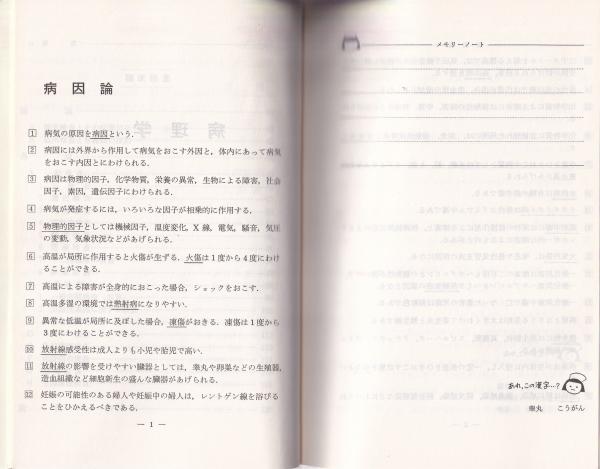 病因論
1 病気の原因を病因という.
2 病因には外界から作用して病気をおこす外因と, 体内にあって病気
をおこす内因とにわけられる.
3 病因は物理的因子, 化学物質, 栄養の異常, 生物による障害, 社会
因子, 素因, 遺伝因子にわけられる.
4 病気が発症するには, いろいろな因子が相乗的に作用する.
5 物理的因子としては機械因子, 温度変化, X線, 電気, 騒音, 気圧
の変動, 気象状況などがあげられる.
6 高温が局所に作用すると火傷が生ずる. 火傷は1度から4度にわけ
ることができる.
7 高温による障害が全身的におこった場合, ショックをおこす.
8 高温多湿の環境では熱射病になりやすい.
9 異常な低温が局所に及ぼした場合, 凍傷がおきる. 凍傷は1度から
3度にわけることができる.
10 放射線感受性は成人よりも小児や胎児で高い.
11 放射線の影響を受けやすい臓器としては, 睾丸や卵巣などの生殖器,
造血組織など細胞新生の盛んな臓器があげられる.
12 妊娠の可能性のある婦人や妊娠中の婦人は, レントゲン線を浴びる
ことをひかえるべきである.
— 1 —
メモリーノート
あれ,この漢字…?
睾丸 こうがん